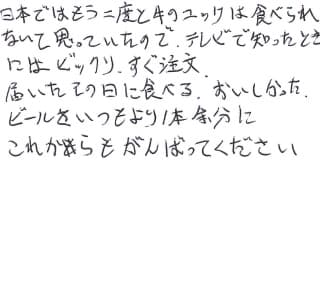 日本ではもう二度と牛のユッケは食べられ
ないと思っていたので、テレビで知ったとき
にはビックリ、すぐ注文、
届いたその日に食べる、おいしかった、
ビールをいつもより1本余分に
これからもがんばってください